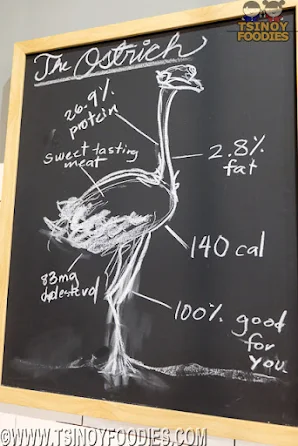 TSINOY
FOODIES
The Ostrich
26.9%
protein
sweet tasting
meat
2.8%
fat
140 cal
83mg
cholesterol
100% good
for
you
©WWW.TSINOYFOODIES.COM